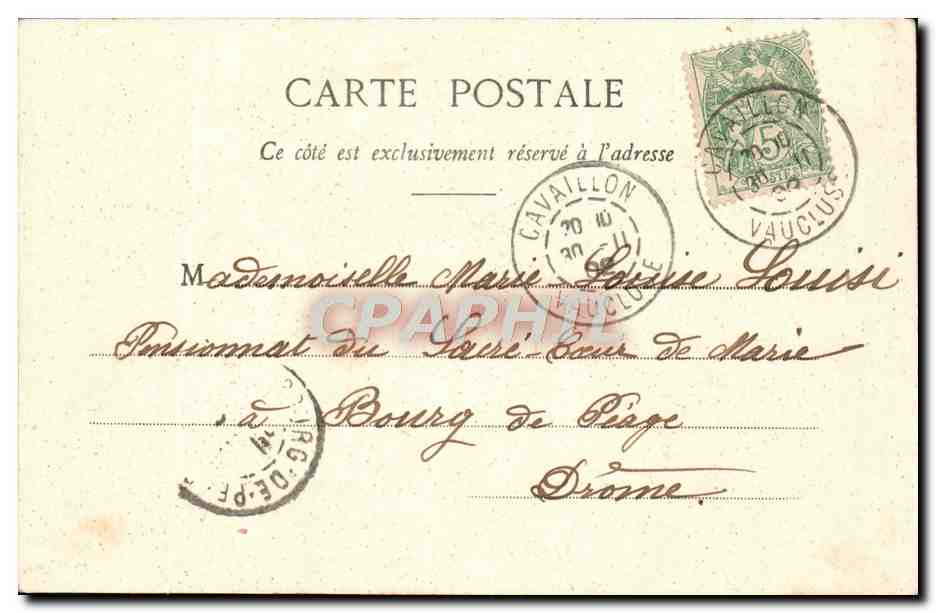 CARTE POSTALE
Ce côté est exclusivement réservé à l'adresse
5
POSTES
CAVAILLON
VAUCLUSE
CAVAILLON
20 10
30 -11
VAUCLUSE
Mademoiselle Marie-Louise Louisi
CPAPHIL
Pensionnat du Sacré-Cœur de Marie
à Bourg de Péage
Drôme.
BOURG-DE-PE